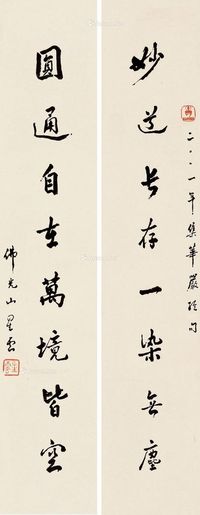 二〇〇一年集華嚴經句
妙道長存一染無塵
圓通自在萬境皆空
佛光山星雲